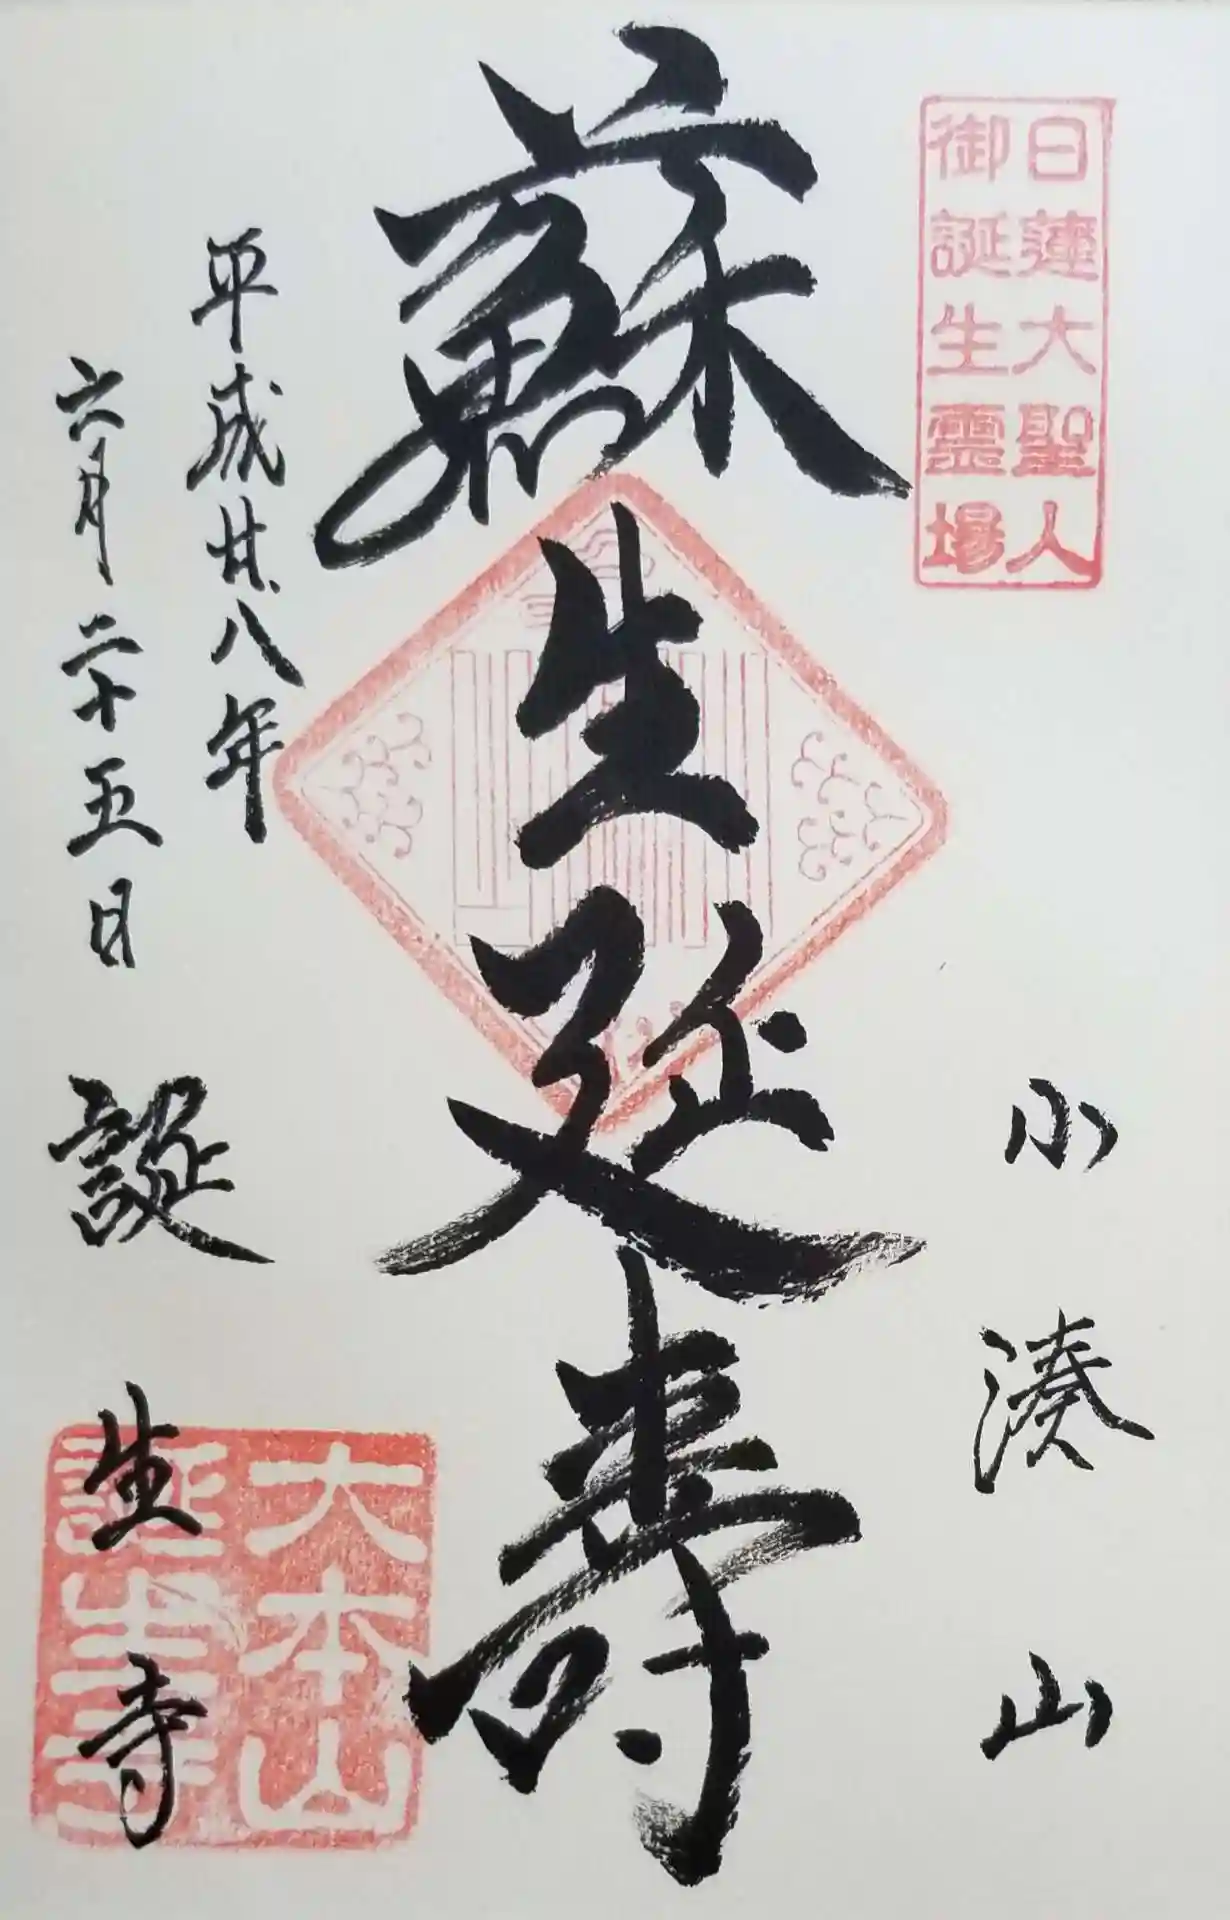 日蓮大聖人
御誕生霊場
小湊山
蘇生延寿
平成廿八年
六月二十五日
誕生寺
大本山
誕生寺